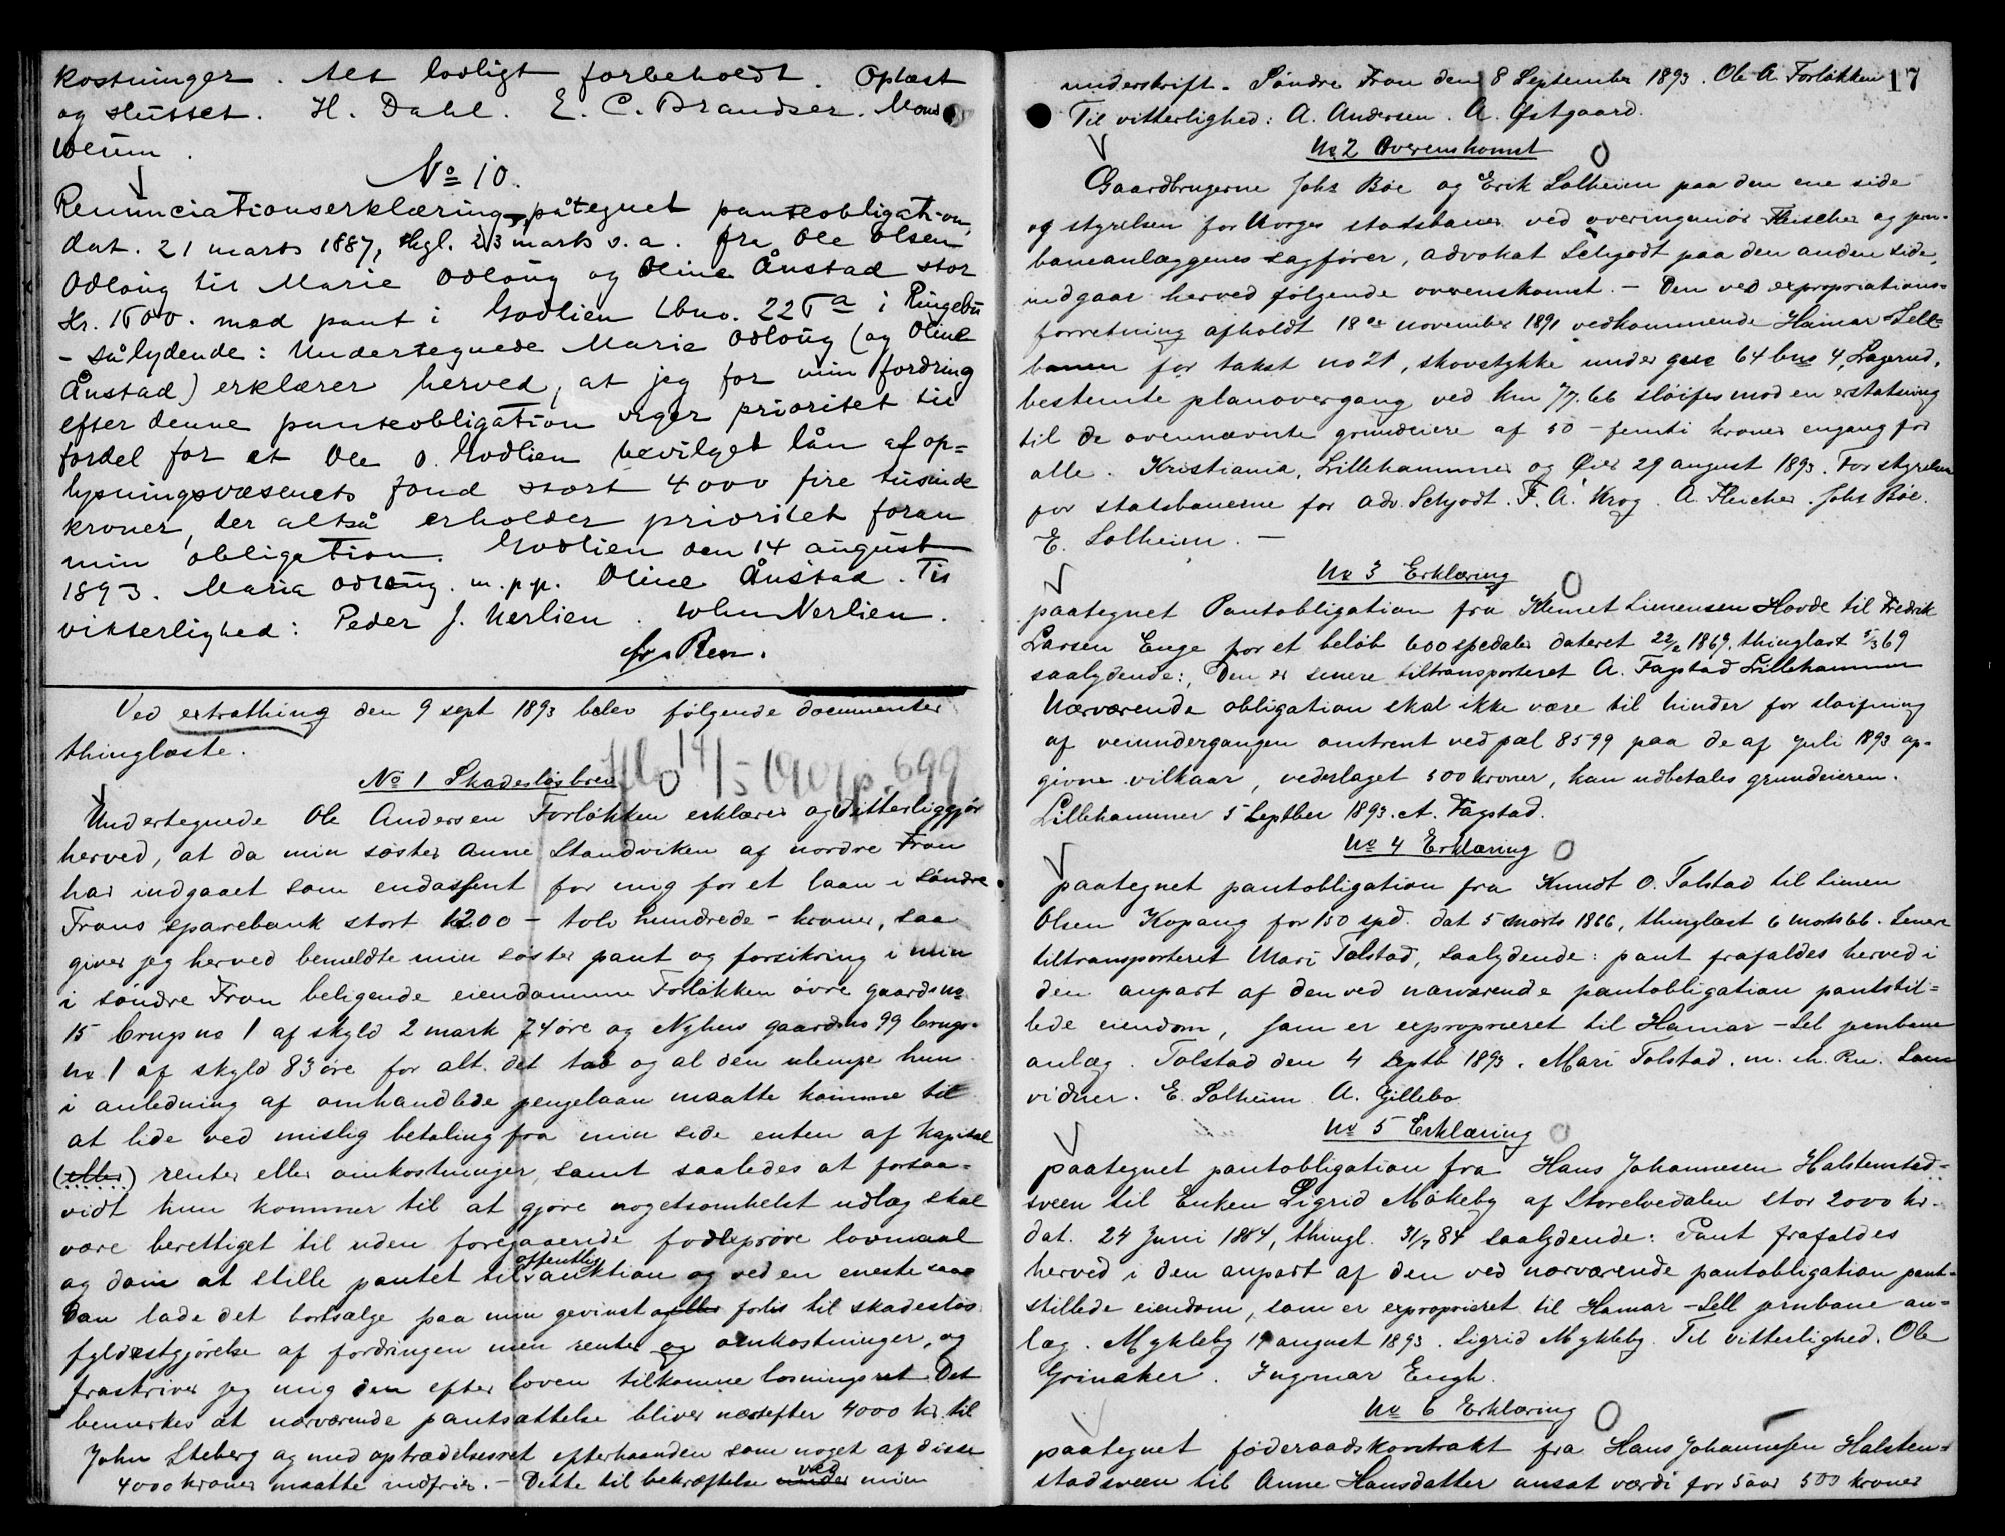 kostninger. Alt lovligt forbeholdt. Oplæst
og sluttet. H. Dahl. E. C. Brandser. Mons
Weum.
No 10.
Renunciationserklæring påtegnet panteobligation,
dat. 21 marts 1887, thgl. 23 marts s. a. fra Ole Olsen
Odloug til Marie Odloug og Oline Ånstad stor
Kr. 1500. med pant i Godlien Lbno. 225a i Ringebu
- sålydende: Undertegnede Marie Odloug (og Oline
Ånstad) erklærer herved, at jeg for min fordring
efter denne panteobligation viger prioritet til
fordel for et Ole O. Godlien bevilget lån af op=
lysningsvæsenets fond stort 4000 fire tusinde
kroner, der altså erholder prioritet foran
min obligation. Godlien den 14 august
1893. Maria Odloug. m. p. p. Oline Ånstad. Til
vitterlighed: Peder J. Nerlien. John Nerlien.
Ved extrathing den 9 sept 1893 blev følgende documenter
thinglæste.
No 1 Skadesløsbrev
Undertegnede Ole Andersen Forløkken erklærer og vitterliggjør
herved, at da min søster Anne Standviken af nordre Fron
har indgaaet som endossent for mig for et laan i søndre
Frons sparebank stort 1200 - tolv hundrede - kroner, saa
giver jeg herved bemeldte min søster pant og forsikring i min
i søndre Fron beligende eiendomme Forløkken øvre gaardsno
15 brugsno 1 af skyld 2 mark 74 øre og Nyhus gaardsno 99 brugs-
no 1 af skyld 83 øre for alt det tab og al den ulempe hun
i anledning af omhandlede pengelaan maatte komme til
at lide ved mislig betaling fra min side enten af kapital
(eller) renter eller omkostninger, samt saaledes at forsaa=
vidt hun kommer til at gjøre nogetsomhelst udlæg skal
være berettiget til uden foregaaende fodleprøve lovmaal
og dom at stille pantet til offentlig auktion og ved en eneste saa=
dan lade det bortsælge paa min gevinst og eller forlis til skadesløs
fyldestgjørelse af fordringen men renter og omkostninger, og
fraskriver jeg mig den efter loven tilkomne løsningsret. Det
bemerkes at nærværende pantsættelse bliver næstefter 4000 kr. til
John Steberg og med optrædelsesret efterhaanden som noget af disse
4000 kroner maatte indfries. - Dette til bekræftelse under ved min
17
underskrift. Søndre Fron den 8 September 1893. Ole A. Forløkken
Til vitterlighed: A. Andersen. A. Østgaard.
No 2 Overenskomst
Gaardbrugerne Johs Bøe og Erik Solheim paa den ene side
og styrelsen for Norges statsbaner ved overingeniør Fleischer og jern-
baneanlæggenes sagfører, advokat Schjødt paa den anden side,
indgaar herved følgende overenskomst. - Den ved expropriations=
forretning afholdt 18de november 1891 vedkommende Hamar-Sell=
banen for takst no 21, skovstykke under gno 64 bno 4, Lagerud,
bestemte planovergang ved km 77.66 sløifes mod en erstatning
til de ovennævnte grundeiere af 50 - femti kroner engang for
alle. Kristiania, Lillehammer og Øier 29 august 1893. For styrelsen
for statsbanerne for adv. Schjødt. F. A. Krog. A. Fleicher. Johs Bøe.
E. Solheim. -
No 3 Erklæring
paategnet Pantobligation fra Klemet Simensen Hovde til Fredrik
Larsen Enge for et beløb 600 spedaler dateret 22/2 1869, thinglæst 5/3 69
saalydende: Den er senere tiltransporteret A. Fagstad Lillehammer
Nærværende obligation skal ikke være til hinder for sløifning
af veiundergangen omtrent ved pæl 8599 paa de af juli 1893 op-
givne vilkaar, vederlaget 500 kroner, kan udbetales grundeieren.
Lillehammer 5 Septber 1893. A. Fagstad.
No 4 Erklæring
paategnet pantobligation fra Knudt O. Tolstad til Simen
Olsen Kopang for 150 spd. dat 5 marts 1866, thinglæst 6 marts 66. Senere
tiltransporteret Mari Tolstad, saalydende: pant frafaldes herved i
den anpart af den ved nærværende pantobligation pantstil=
lede eiendom, som er exproprieret til Hamar - Sel jernbane
anlæg. Tolstad den 4 Septb 1893. Mari Tolstad. m. ih. Pn. Som
vidner. E. Solheim A. Gillebo.
No 5 Erklæring
paategnet pantobligation fra Hans Johannesen Halstenstad=
sveen til Enken Sigrid Møkeby af Storelvedalen stor 2000 kr.
dat. 24 Juni 1884, thingl. 31/7 84 saalydende: Pant frafaldes
herved i den anpart af den ved nærværende pantobligation pant=
stillede eiendom, som er exproprieret til Hamar - Sell jernbane an=
læg. Mykleby 19 august 1893. Sigrid Mykleby. Til vitterlighed. Ole
Grinaker. Ingmar Engh.
No 6 Erklæring
paategnet føderaadskontrakt fra Hans Johannessen Halsten=
stadsveen til Anne Hansdatter ansat værdi for 5 aar 500 kroner